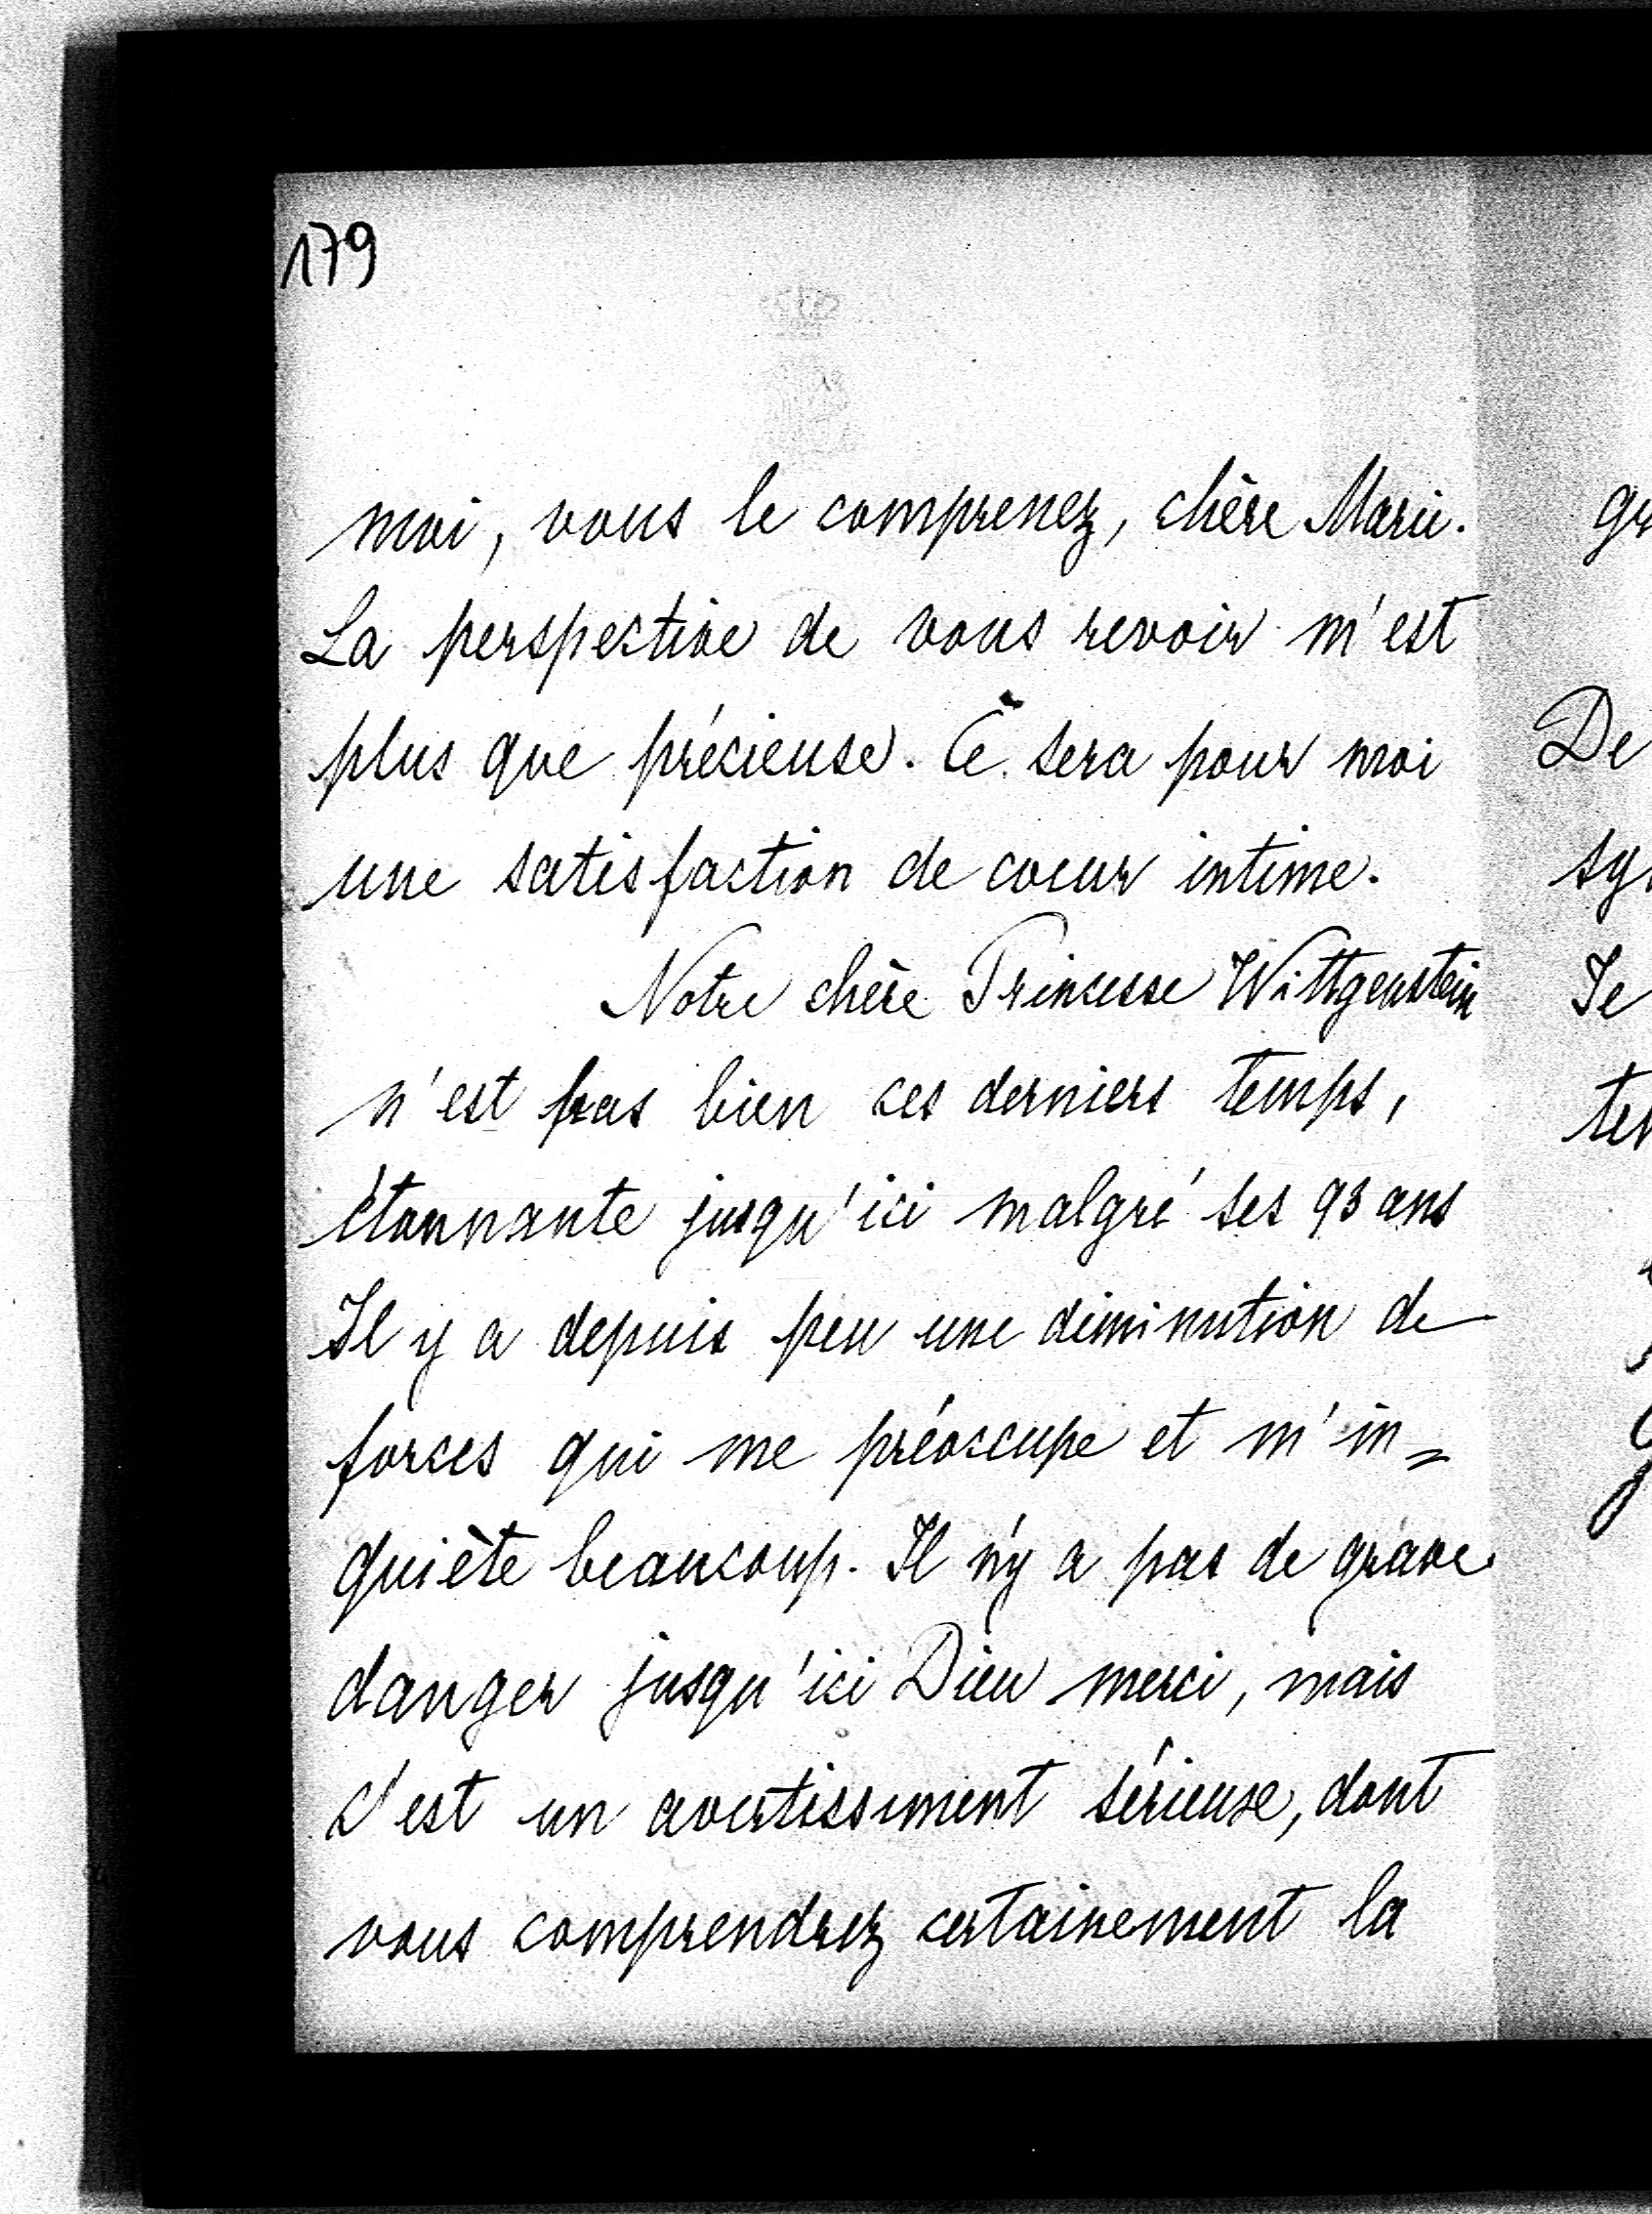 179
moi, vous le comprenez, chère Marie.
La perspective de vous revoir m'est
plus que précieuse. Ce sera pour moi
une satisfaction de coeur intime.
Notre chère Princesse Wittgenstein
n'est pas bien ces derniers temps,
étonnante jusqu'ici malgré ses 93 ans
Il y a depuis peu une diminution de
forces qui me préoccupe et m'in=
quiète beaucoup. Il n'y a pas de grave
danger jusqu'ici Dieu merci, mais
c'est un avertissement sérieuse, dont
vous comprendrez certainement la
De
Je